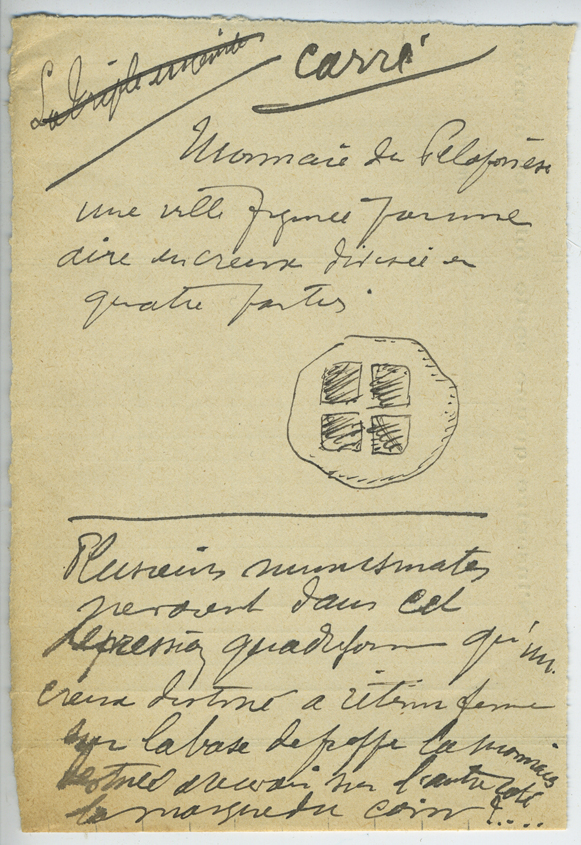 La triple enceinte
carré
Monnaie du Peloponèse
une ville figurée par une
aire en creux divisée en
quatre parties
Plusieurs numismates
ne voient dans cet
depression quadriforme qu'un
creux destiné a retenir ferme
sur la base de frappe la monnaie
destinée a recevoir sur l'autre coté
la marque du coin !....